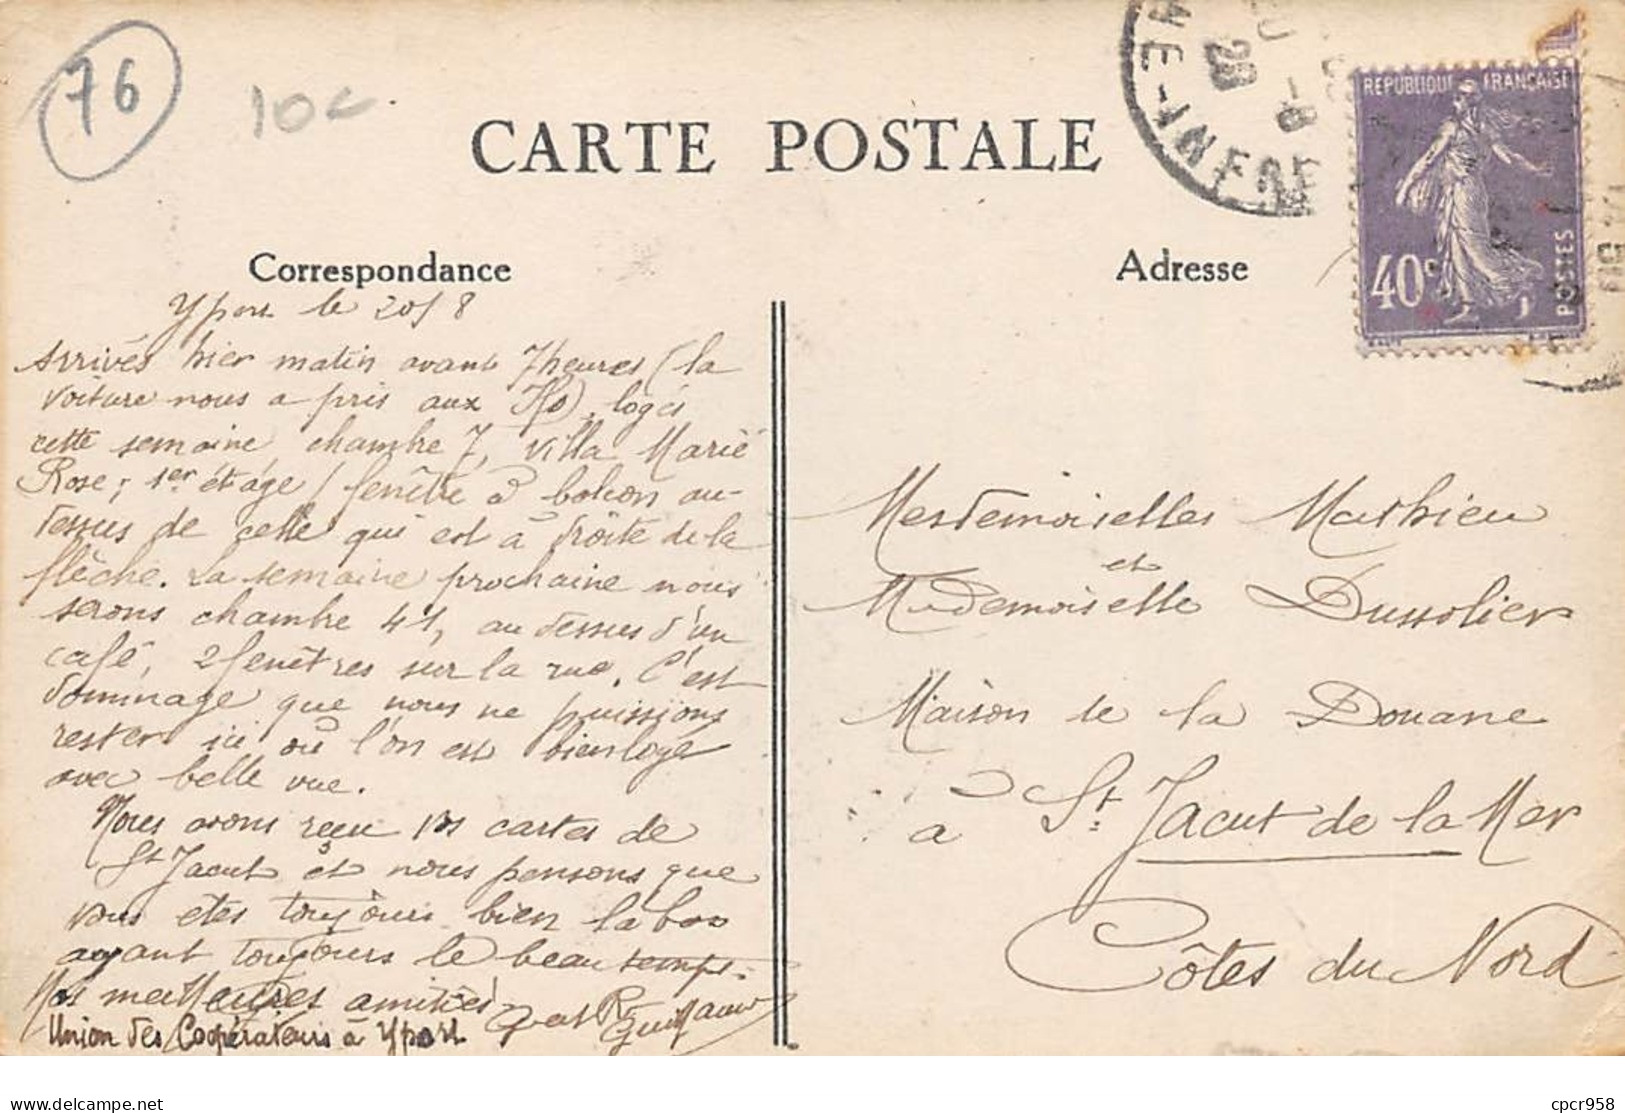 76
10€
CARTE POSTALE
NE-INFRE
20 -8
REPUBLIQUE FRANÇAISE
40c
POSTES
Correspondance
Adresse
Yport le 20/8
Arrivés hier matin avant 7 heures (la
voiture nous a pris aux Ifs), logés
cette semaine chambre 7, villa Marie
Rose, 1er étage (fenêtre à balcon au-
dessus de celle qui est à droite de la
flèche. La semaine prochaine nous
serons chambre 41, au dessus d'un
café, 2 fenêtres sur la rue. C'est
dommage que nous ne puissions
rester ici où l'on est bien logé
avec belle vue.
Nous avons reçu vos cartes de
St Jacut et nous pensons que
vous êtes toujours bien là bas
ayant toujours le beau temps.
Nos meilleures amitiés
Union des Coopérateurs à Yport
Mesdemoiselles Mathieu
et
Mademoiselle Dussolier
Maison de la Douane
à St. Jacut de la Mer
Côtes du Nord
delcampe.net
cpcr958